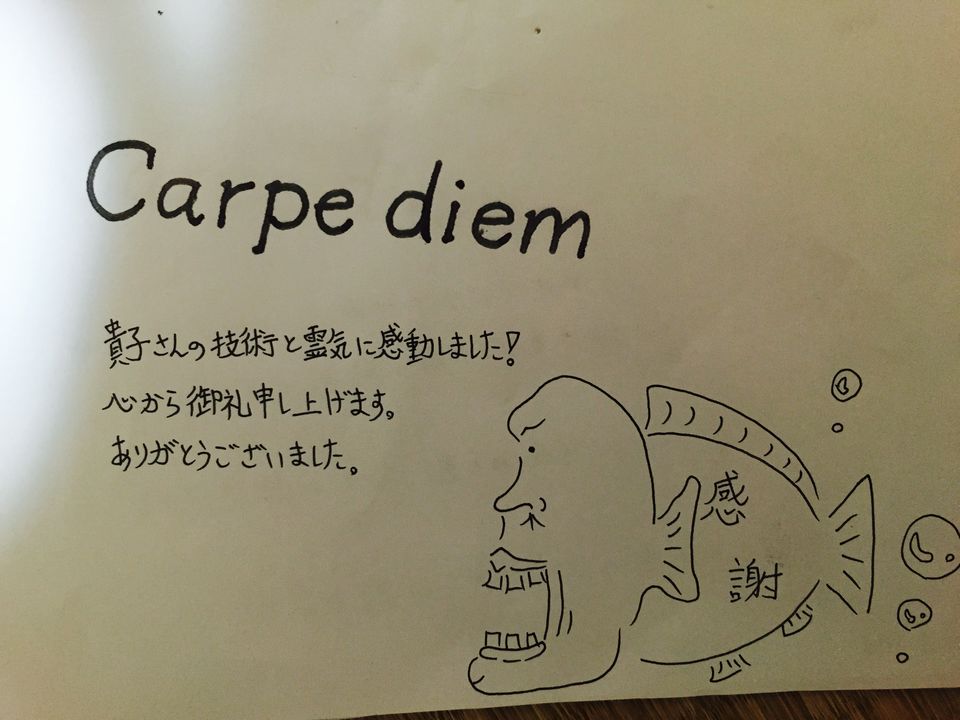 Carpe diem
貴子さんの技術と霊気に感動しました!
心から御礼申し上げます。
ありがとうございました。
感
謝